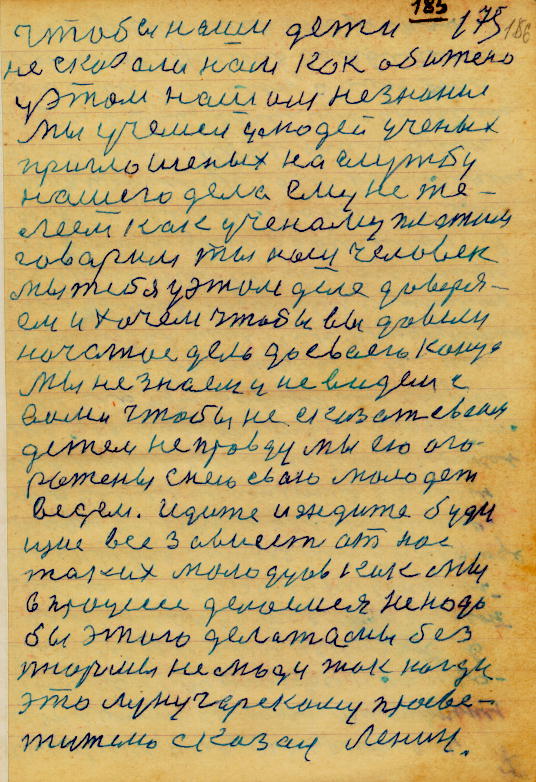 185 175 186
чтобы наши дети
не сказали нам как обижено
у этом нашом незнании
мы учемся у людей ученых
приглошеных на службу
нашего дела ему не же-
леем как ученаму платим
говарим ты наш человек
мы тебя у этом деле доверя-
ем и хочем чтобы вы довели
начатое дело до сваего конца
мы не знаем и не видем с
вами чтобы не сказат сваим
детем неправду мы ею ого-
рожены с нею сваю молодеж
ведем. Идите и ждите буду
щие все зависет от нас
таких молодцов как мы
в процесе делаемся не надо
бы этого делат а мы без
тюрмы не люди так когда
это луначарскому просве-
тителю сказал Ленин.